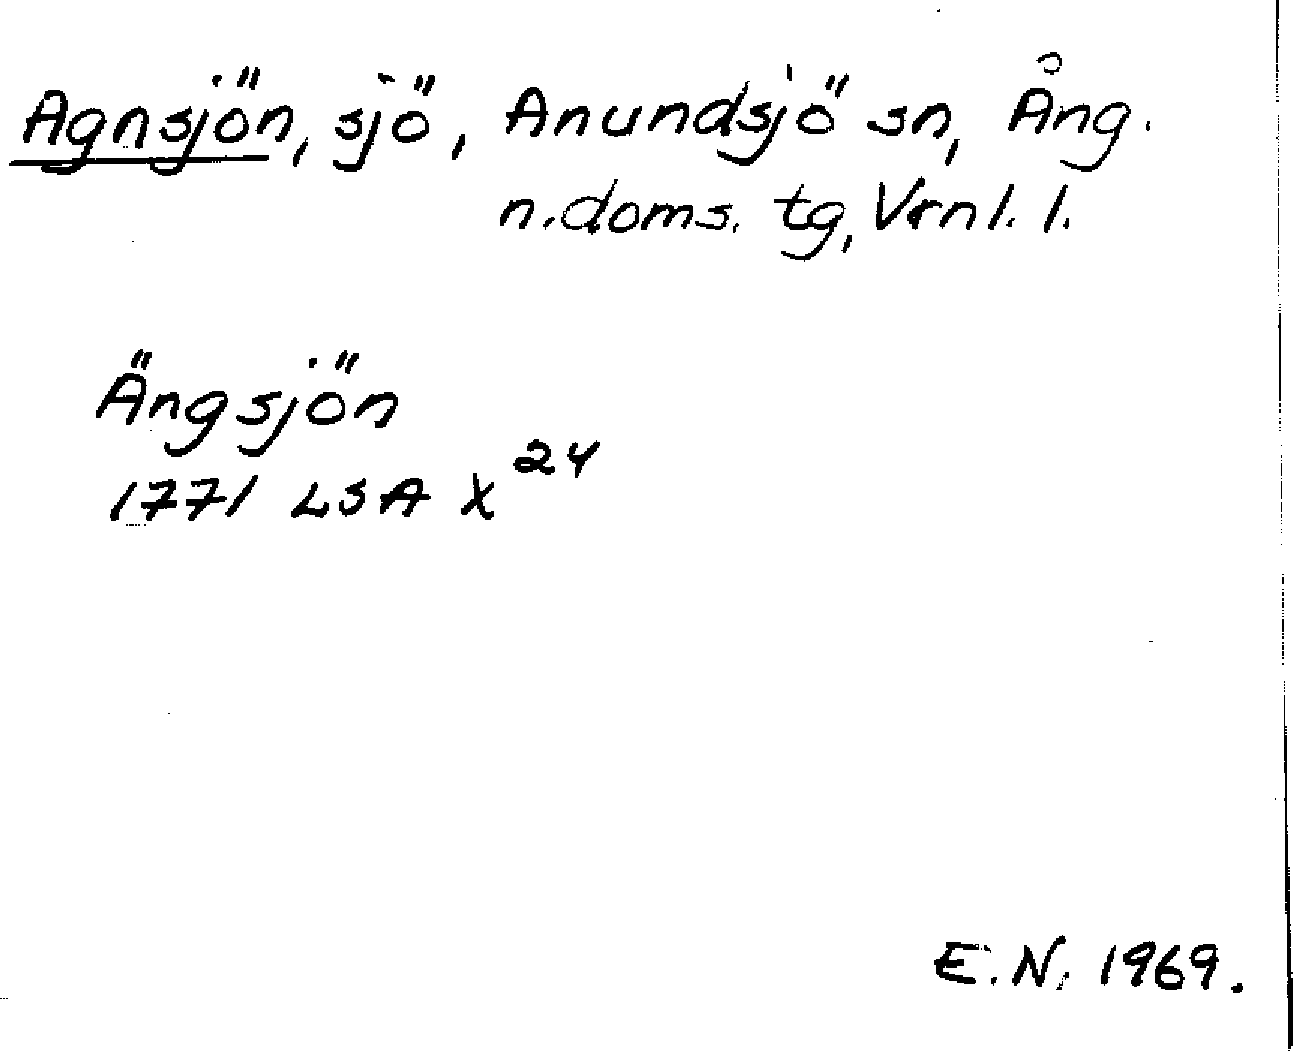 Agnsjön, sjö, Anundsjö sn, Ång.
n.doms. tg, Vrnl. l.
Ängsjön
1771 LSA X 24
E.N. 1969.